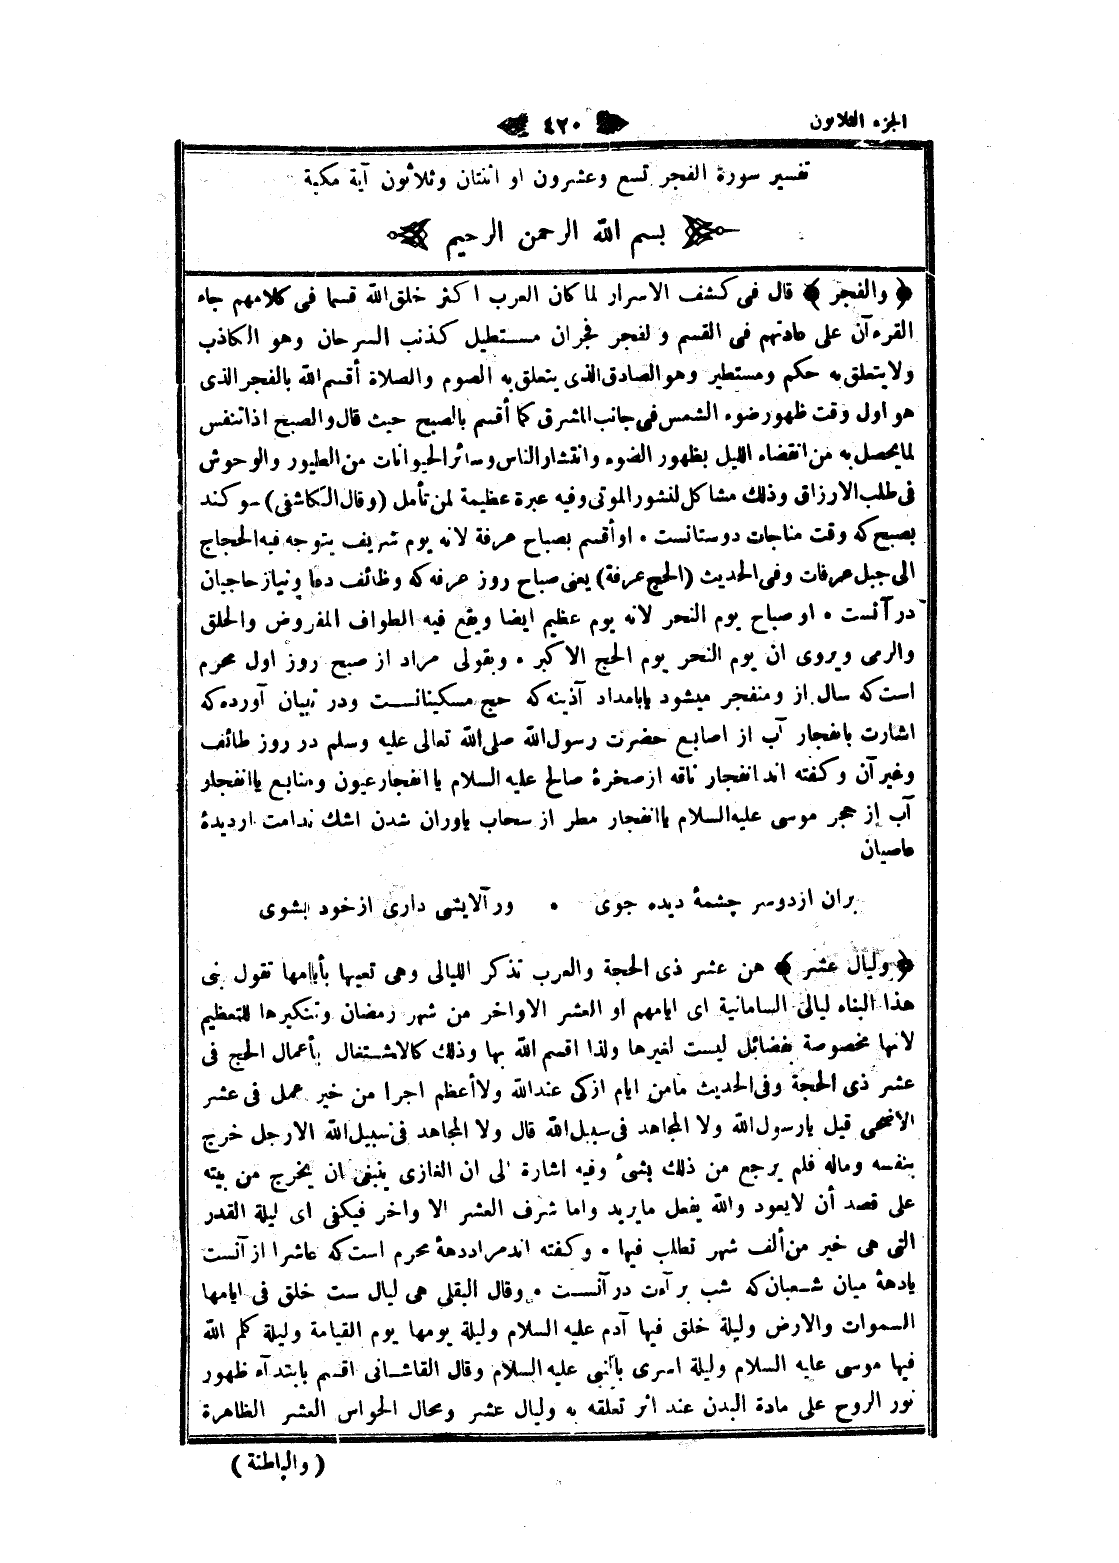 الجزء الثلاثون
٤٢٠
تفسير سورة الفجر تسع وعشرون او اثنتان وثلاثون آية مكية
بسم الله الرحمن الرحيم
﴿ والفجر ﴾ قال فى كشف الاسرار لما كان العرب اكثر خلق الله قسما فى كلامهم جاء
القرءآن على عادتهم فى القسم ولفجر فجران مستطيل كذنب السرحان وهو الكاذب
ولا يتعلق به حكم ومستطير وهو الصادق الذى يتعلق به الصوم والصلاة أقسم الله بالفجر الذى
هو اول وقت ظهور ضوء الشمس فى جانب المشرق كما أقسم بالصبح حيث قال والصبح اذا تنفس
لما يحصل به من انقضاء الليل بظهور الضوء وانتشار الناس وسائر الحيوانات من الطيور والوحوش
فى طلب الارزاق وذلك مشاكل لنشور الموتى وفيه عبرة عظيمة لمن تأمل (وقال الكاشفى) سوكند
بصبح كه وقت مناجات دوستانست • او أقسم بصباح عرفة لانه يوم شريف يتوجه فيه الحجاج
الى جبل عرفات وفى الحديث (الحج عرفة) يعنى صباح روز عرفه كه وظائف دعا ونياز حاجيان
در آنست • او صباح يوم النحر لانه يوم عظيم ايضا ويقع فيه الطواف المفروض والحلق
والرمى ويروى ان يوم النحر يوم الحج الاكبر • وبقولى مراد از صبح روز اول محرم
است كه سال از و منفجر ميشود يا بامداد آذينه كه حج مسكينانست ودر تبيان آورده كه
اشارت بانفجار آب از اصابع حضرت رسول الله صلى الله تعالى عليه وسلم در روز طائف
وغير آن وكفته اند انفجار ناقه از صخرهٔ صالح عليه السلام يا انفجار عيون ومنابع يا انفجار
آب از حجر موسى عليه السلام يا انفجار مطر از سحاب ياوران شدن اشك ندامت ازديدهٔ
عاصيان
بران از دوسر چشمهٔ ديده جوى • ور آلايشى دارى از خود بشوى
﴿ وليال عشر ﴾ هن عشر ذى الحجة والعرب تذكر الليالى وهى تعيها بأيامها تقول بنى
هذا البناء ليالى السامانية اى ايامهم او العشر الاواخر من شهر رمضان وتنكيرها للتعظيم
لانها مخصوصة بفضائل ليست لغيرها ولذا اقسم الله بها وذلك كالاشتغال بأعمال الحج فى
عشر ذى الحجة وفى الحديث مامن ايام ازكى عند الله ولا أعظم اجرا من خير عمل فى عشر
الاضحى قيل يارسول الله ولا المجاهد فى سبيل الله قال ولا المجاهد فى سبيل الله الارجل خرج
بنفسه وماله فلم يرجع من ذلك بشئ وفيه اشارة لى ان الغازى ينبغى ان يخرج من بيته
على قصد أن لا يعود والله يفعل مايريد واما شرف العشر الا واخر فيكفى اى ليلة القدر
التى هى خير من ألف شهر تطلب فيها • وكفته اند مراد دههٔ محرم است كه عاشرا از آنست
يادههٔ ميان شعبان كه شب برآءت در آنست • وقال البقلى هى ليال ست خلق فى ايامها
السموات والارض وليلة خلق فيها آدم عليه السلام وليلة يومها يوم القيامة وليلة كلم الله
فيها موسى عليه السلام وليلة اسرى بالنبى عليه السلام وقال القاشانى اقسم بابتدآء ظهور
نور الروح على مادة البدن عند اثر تعلقه به وليال عشر ومحال الحواس العشر الظاهرة
( والباطنة )